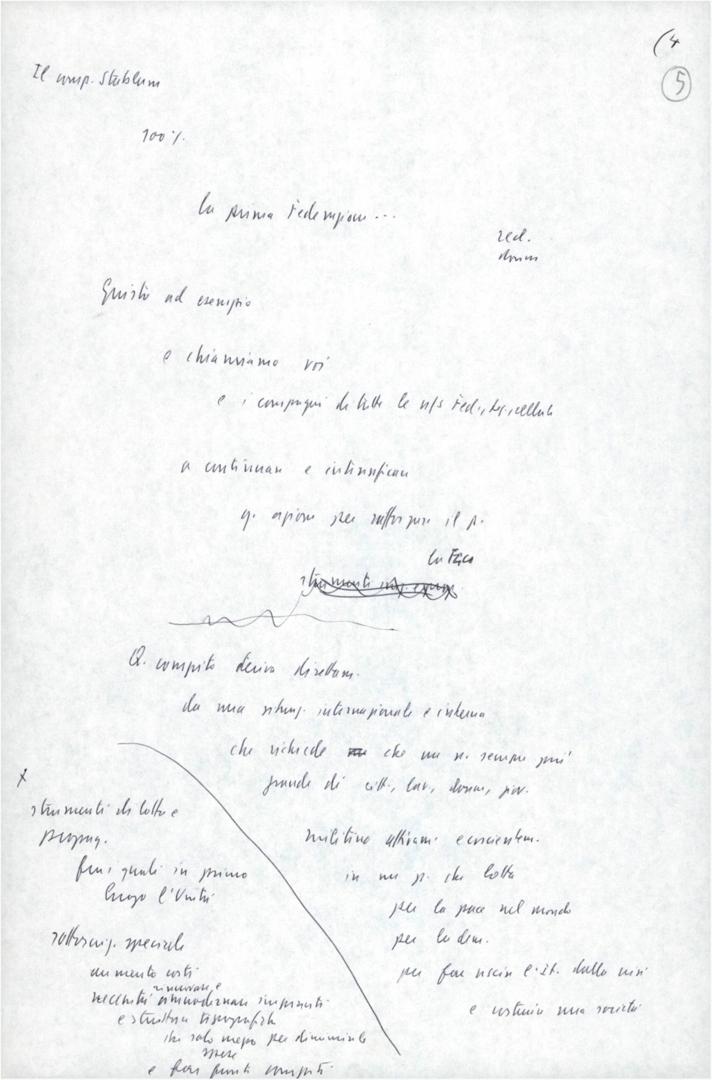 (4
5
Il comp. Stablum
100%
la prima Federazione...
red.
donne
Giusto ad esempio
e chiamiamo voi
e i compagni di tutte le ns Fed., sez., cellule
a continuare e intensificare
q. azione per rafforzare il p.
la Fgci
strumenti
Q. compito deriva direttam.
da una situaz. internazionale e interna
che richiede che un n. sempre più
grande di citt., lav., donne, giov.
militino attivam. e coscientem.
in un p. che lotta
per la pace nel mondo
per la dem.
per fare uscire l'It. dalla crisi
e costruire una società
x
strumenti di lotta e
propag.
fra i quali in primo
luogo l'Unità
sottoscriz. speciale
aumento costi
rinnovare e
necessità ammodernare impianti
e strutture tipografiche
che solo mezzo per diminuire
spese
e fare fronte compiti